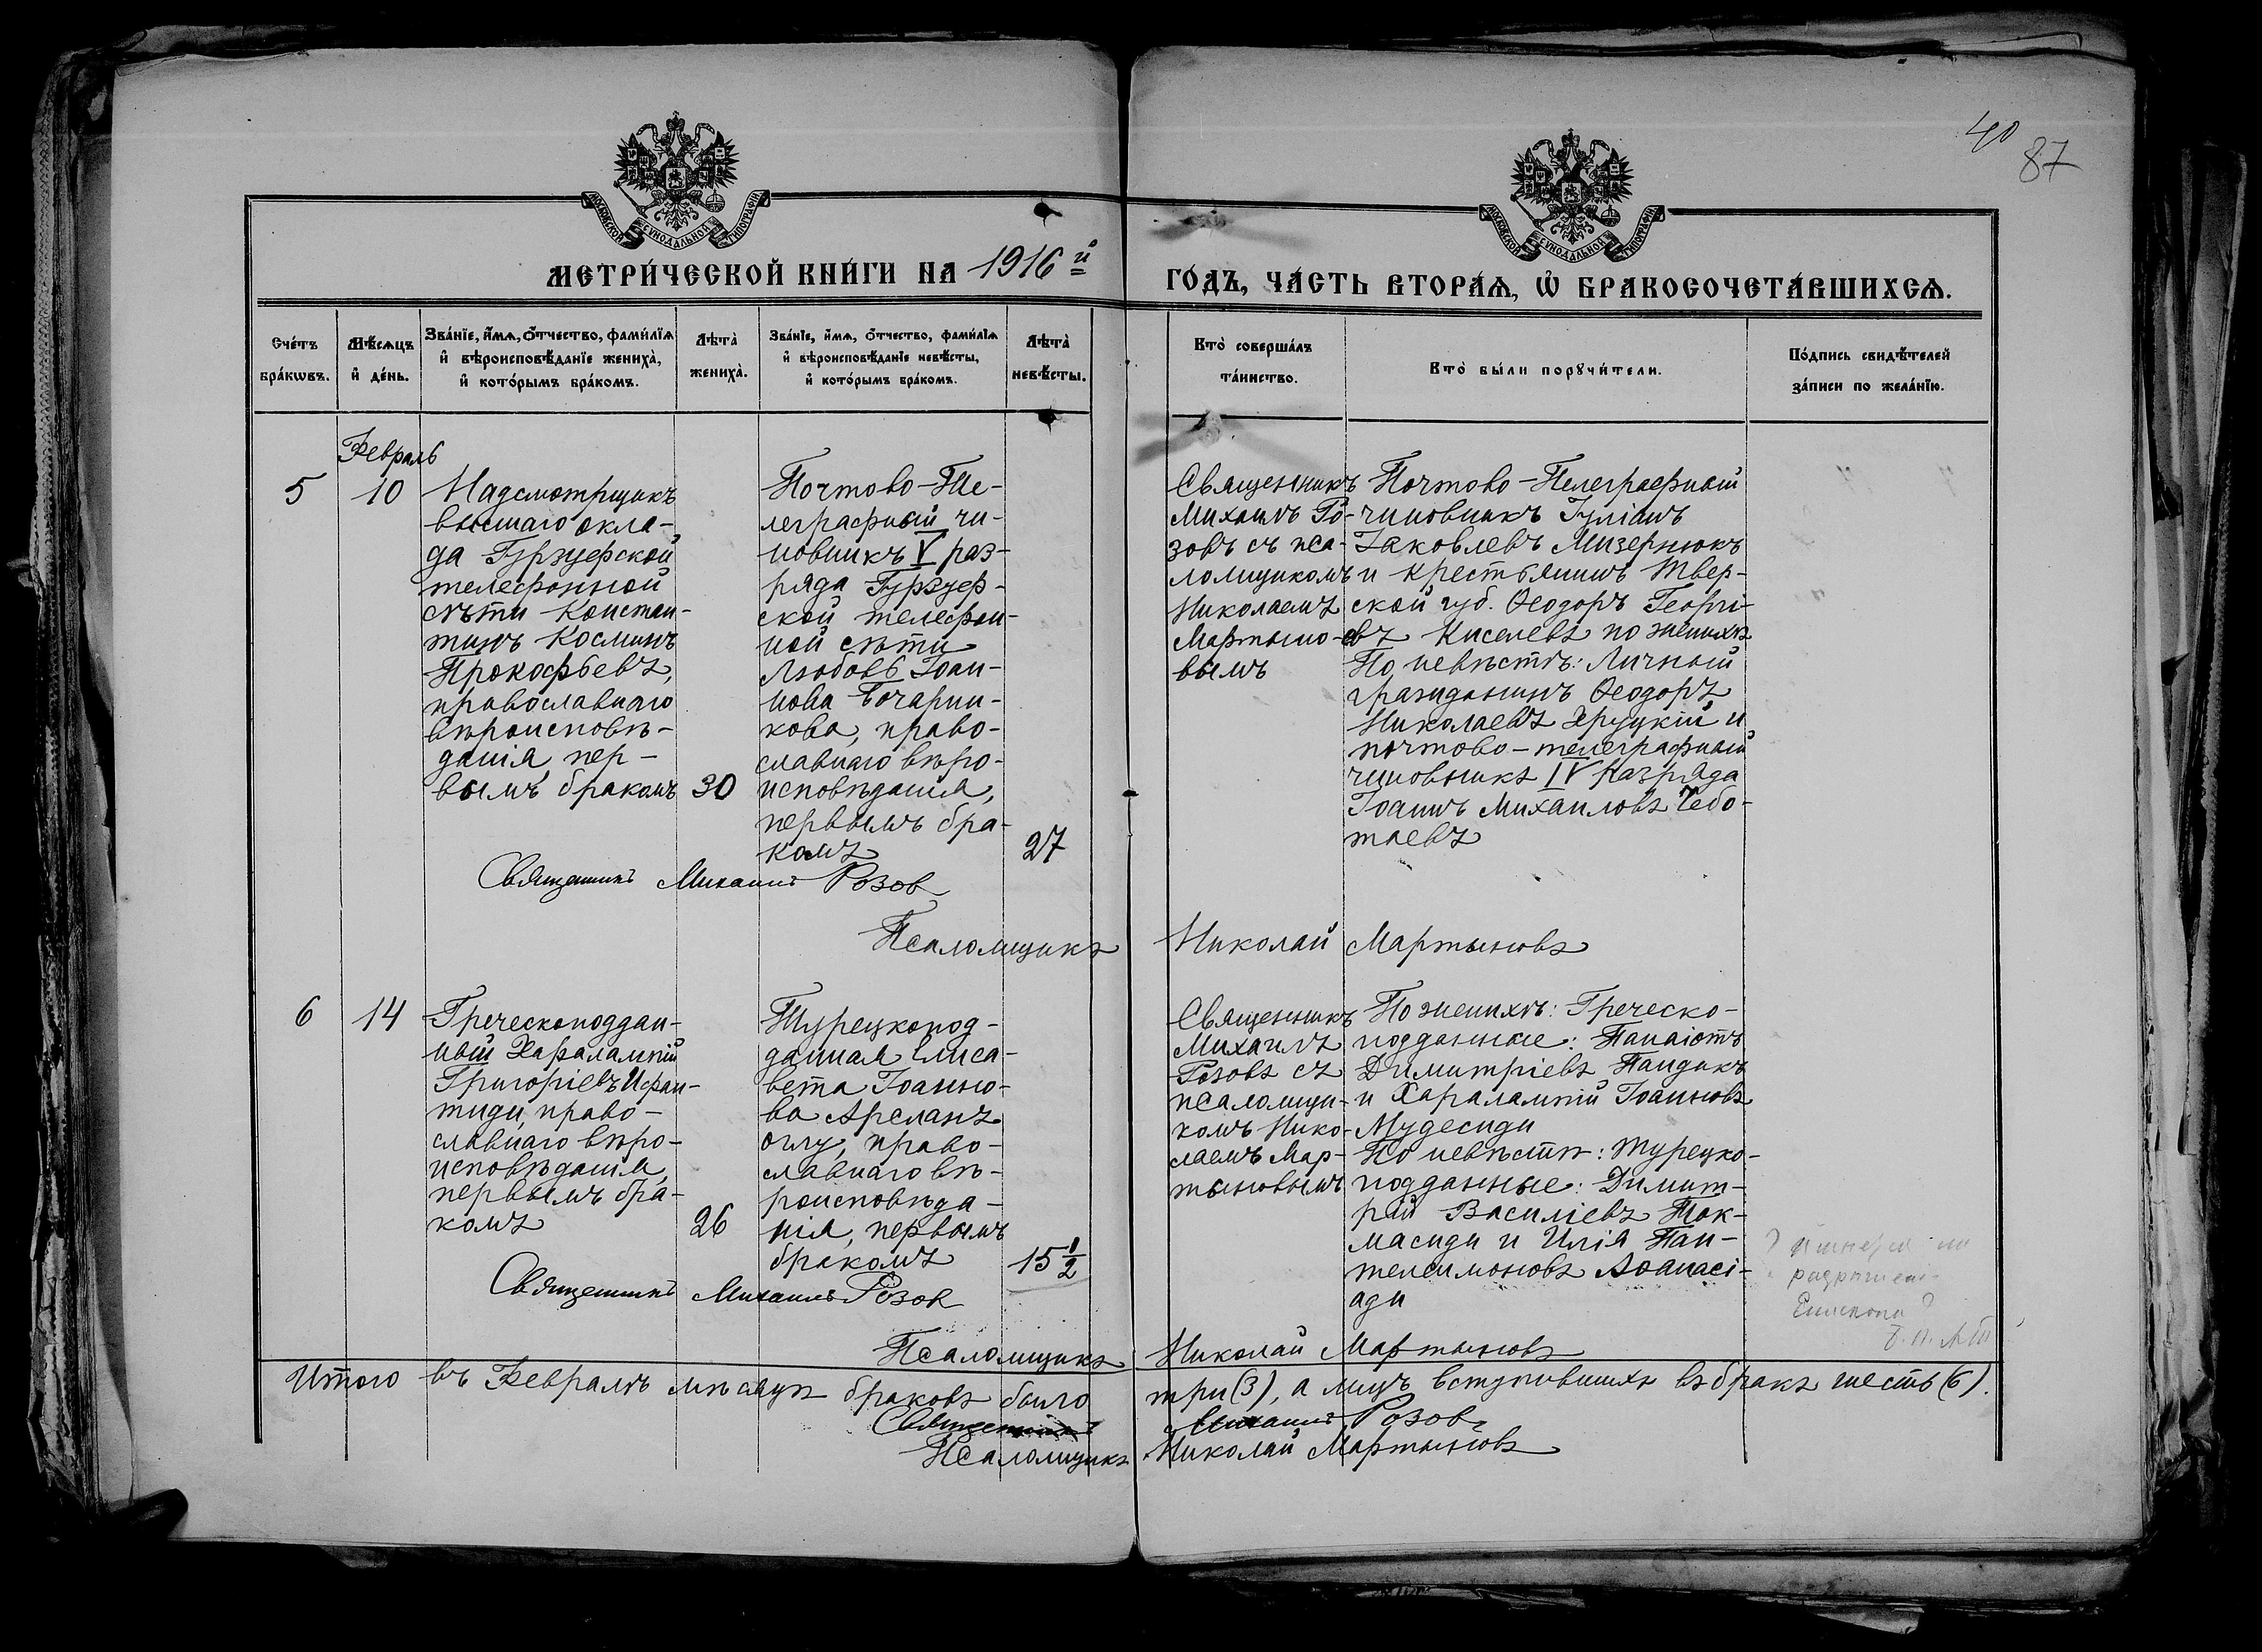 40
87
МОСКОВСКОЙ СѴНОДАЛЬНОЙ ТИПОГРАФІИ
МОСКОВСКОЙ СѴНОДАЛЬНОЙ ТИПОГРАФІИ
МЕТРИ́ЧЕСКОЙ КНИ́ГИ НА 1916й
ГО́ДЪ, ЧА́СТЬ ВТОРА́Ѧ, Ѽ БРАКОСОЧЕТА́ВШИХСѦ.
Сче́тъ
бра́кѡвъ.
Мѣ́сѧцъ
и҆ де́нь.
Зва́нїе, и҆́мѧ, ѻ҆́тчество, фами́лїѧ
и҆ вѣроисповѣ́данїе жениха̀,
и҆ кото́рымъ бра́комъ.
Лѣта̀
жениха̀.
Зва́нїе, и҆́мѧ, ѻ҆́тчество, фами́лїѧ
и҆ вѣроисповѣ́данїе невѣ́сты,
и҆ кото́рымъ бра́комъ.
Лѣта̀
невѣ́сты.
Кто̀ соверша́лъ
та́инство.
Кто̀ бы́ли порꙋчи́тели.
По́дпись свидѣ́телей
за́писи по жела́нїю.
Февраль
5
10
Надсмотрщикъ
высшаго окла-
да Гурзуфской
телефонной
сѣти Констан-
тинъ Косминъ
Прокофьевъ,
православнаго
вѣроисповѣ-
данія, пер-
вымъ бракомъ
30
Почтово-Те-
леграфный чи-
новникъ V раз-
ряда Гурзуф-
ской телефон-
ной сѣти
Любовь Іоан-
нова Бочарни-
кова, право-
славнаго вѣро-
исповѣданія,
первымъ бра-
комъ
27
Священникъ
Михаилъ Ро-
зовъ съ пса-
ломщикомъ
Николаемъ
Мартыно-
вымъ
Почтово-Телеграфный
чиновникъ Іуліанъ
Іаковлевъ Мизернюкъ
и крестьянинъ Твер-
ской губ. Ѳеодоръ Георгі-
евъ Киселевъ по женихѣ
По невѣстѣ: Личный
гражданинъ Ѳеодоръ
Николаевъ Хруцкій и
почтово-телеграфный
чиновникъ IV разряда
Іоаннъ Михаиловъ Чебо-
таевъ
Священникъ Михаилъ Розов
Псаломщикъ Николай Мартыновъ
6
14
Греческоподдан-
ный Харалампій
Григоріевъ Ифан-
тиди, право-
славнаго вѣро-
исповѣданія,
первымъ бра-
комъ
26
Турецкопод-
данная Елиса-
вета Іоанно-
ва Арсланъ
оглу, право-
славнаго вѣ-
роисповѣда-
нія, первымъ
бракомъ
15 1/2
Священникъ
Михаилъ
Розовъ съ
псаломщи-
комъ Нико-
лаемъ Мар-
тыновымъ
По женихѣ: Греческо-
подданные: Панаіотъ
Димитріевъ Пандакъ
и Харалампій Іоанновъ
Мудесиди
По невѣстѣ: Турецко-
подданные: Димит-
рій Василіевъ Ток-
масиди и Илія Пан-
телеимоновъ Аѳанасі-
ади
разрѣшені-
Епископа?
Священникъ Михаилъ Розов
Псаломщикъ Николай Мартыновъ
Итого въ Февралѣ мѣсяцѣ браковъ было три (3), а лицъ вступившихъ въ бракъ шесть (6).
Священникъ Михаилъ Розов
Псаломщикъ Николай Мартыновъ